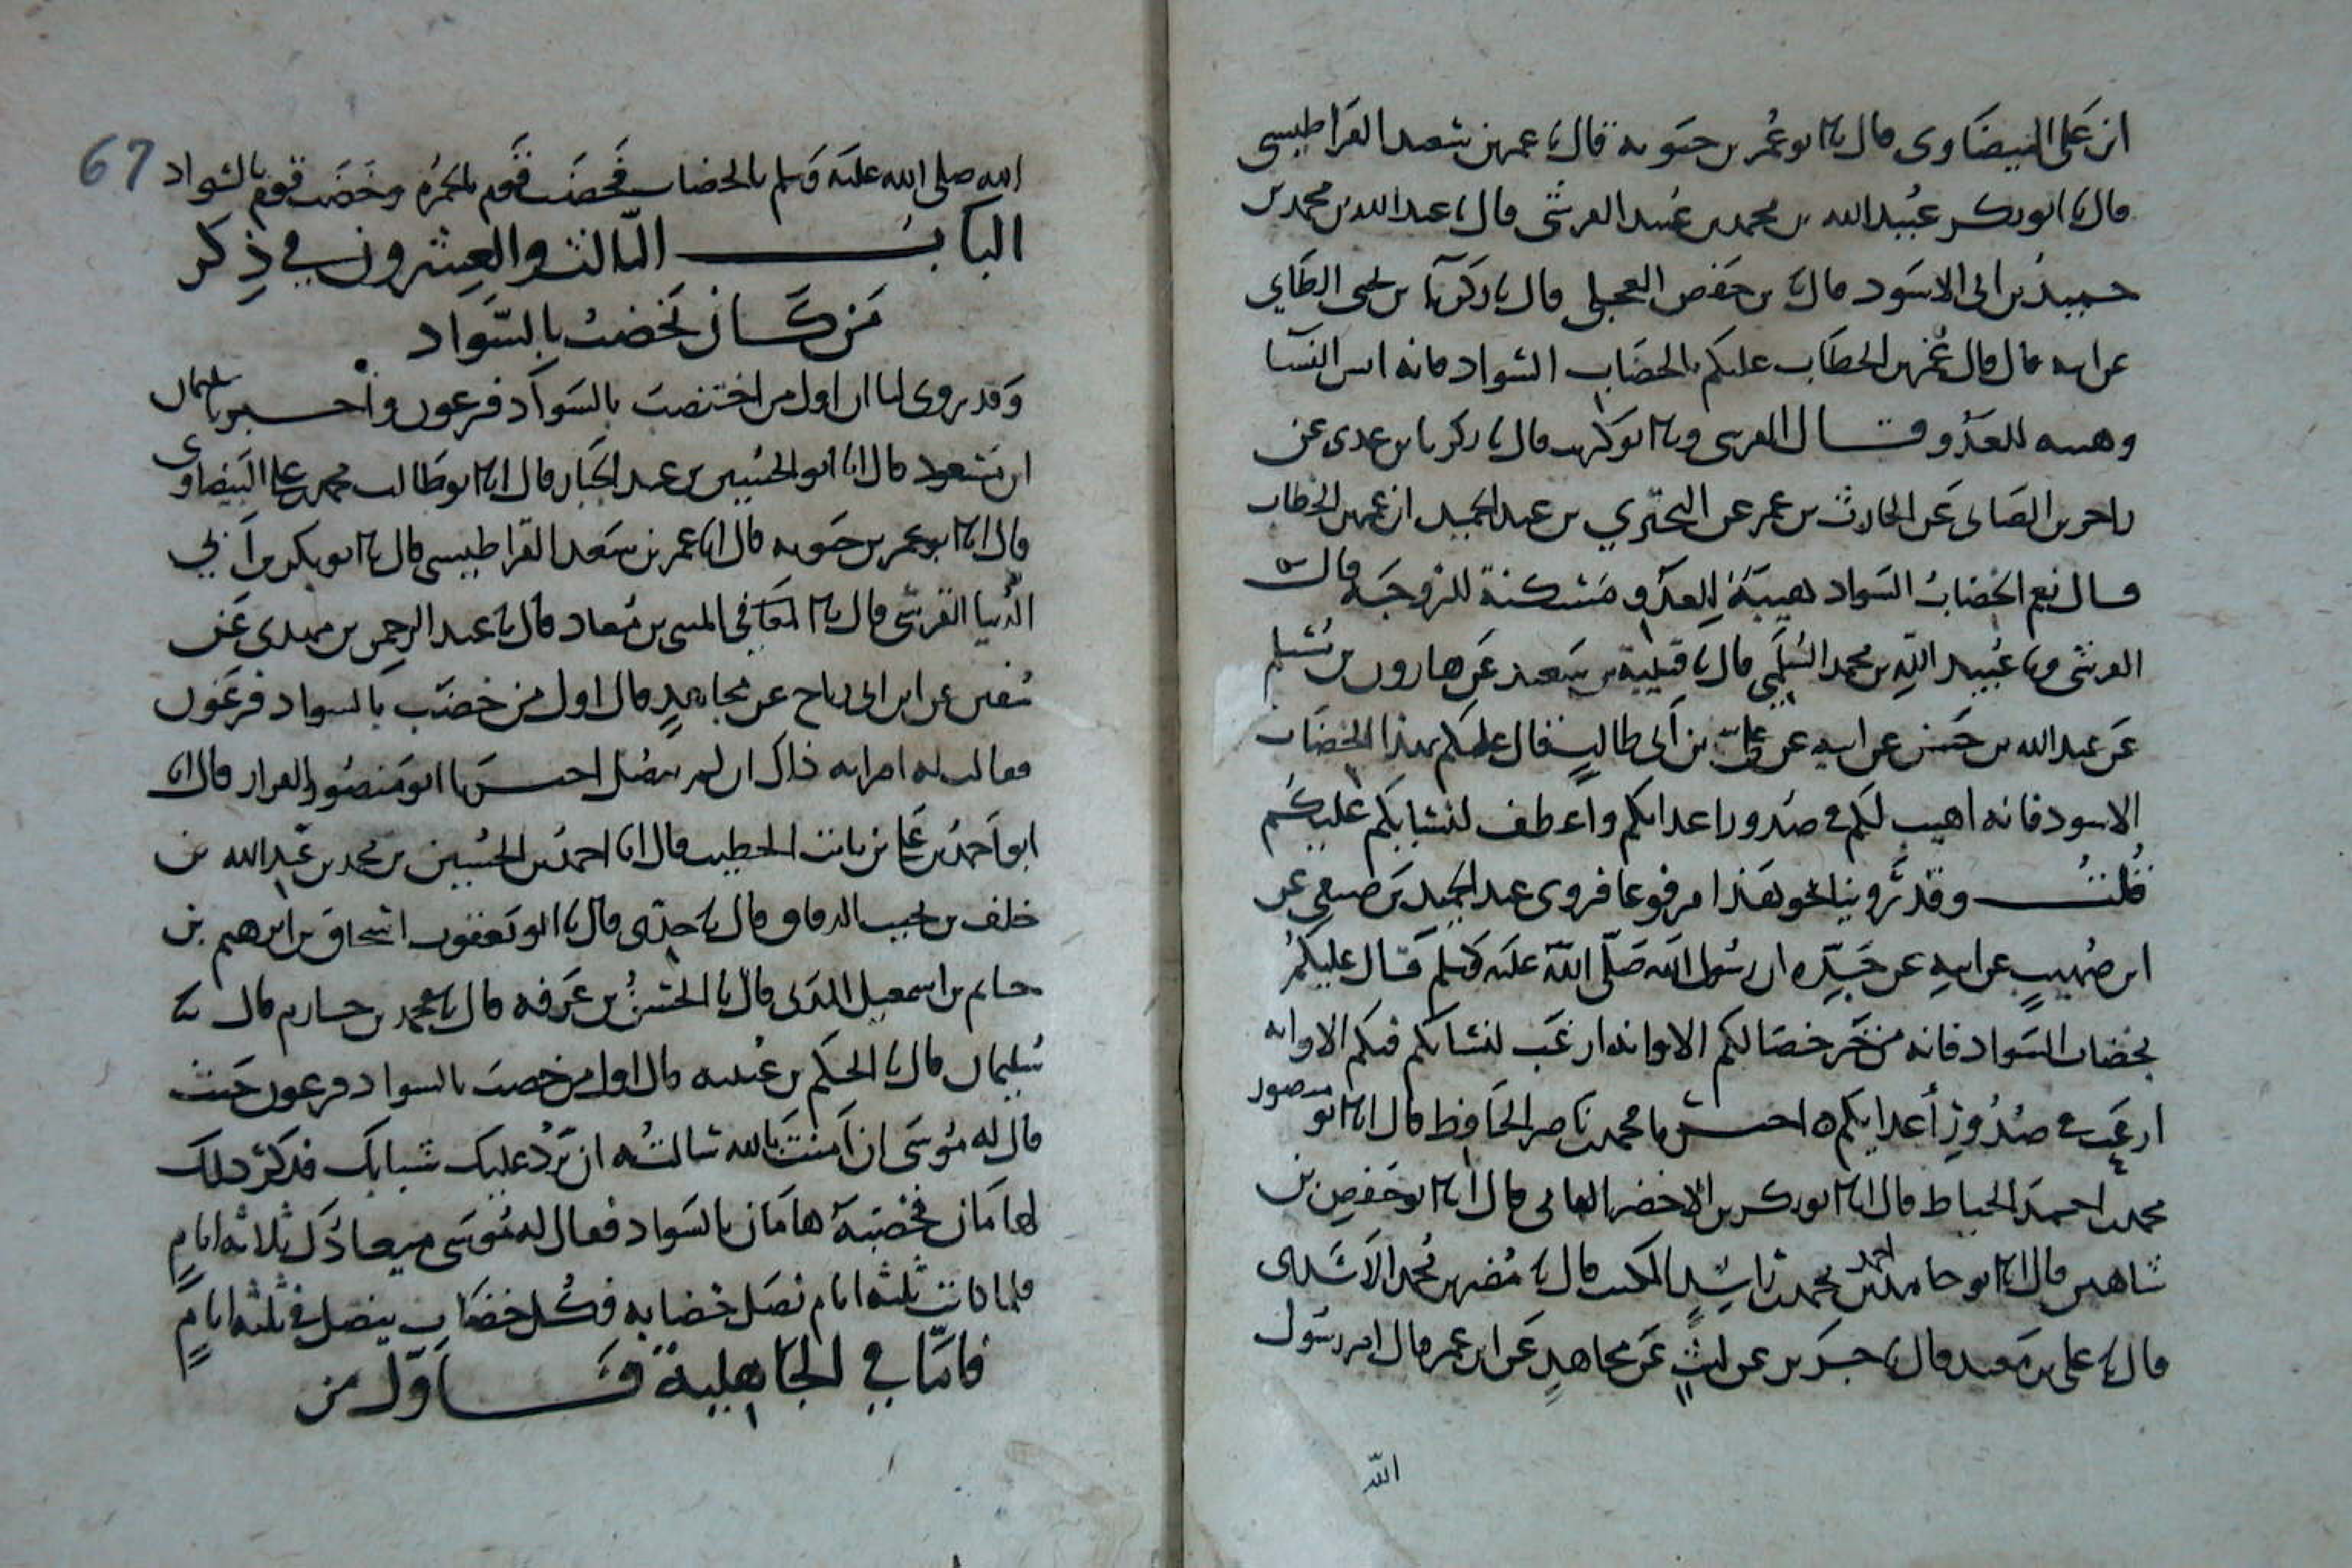 ابن على البيضاوى قال ابا ابو عمر بن حيويه قال ابا عمر بن سعد القراطيسى
قال ابا ابو بكر عبيد الله بن محمد بن عبيد القرشى قال ابا عبد الله بن محمد بن
حميد بن ابى الاسود قال بن حفص العجلى قال ابا زكريا بن يحيى الطاى
عن ابيه قال قال عمر بن الخطاب عليكم بالخضاب السواد فانه انس النسآ
وهيبه للعدو وقال القرشى وابا ابو كريب قال ابا زكريا بن عدى عن
عن الحارث بن عمر عن البختري بن عبد الحميد ان عمر بن الخطاب
قال نعم الخضاب السواد هيبة للعدو مسكنة للزوجة قال
القرشى وابا عبيد الله بن محمد قال ابا قتيبة بن سعيد عن هارون بن مسلم
عن عبد الله بن حسن عن ابيه عن على بن أبى طالب قال عليكم بهذا الخضاب
الاسود فانه اهيب لكم فى صدور اعدايكم واعطف لنسايكم عليكم
قلت وقد روينا نحو هذا مرفوعا فروى عبد الحميد بن صيفى عن
ابن صهيب عن ابيه عن جده ان رسول الله صلى الله عليه وسلم قال عليكم
بخضاب السواد فانه من خير خضابكم الا وانه ارغب لنسايكم فيكم الا وانه
ارعب فى صدور أعدايكم ه اخبرنا محمد بن ناصر الحافظ قال ابا ابو منصور
محمد بن احمد الخياط قال ابا ابو بكر بن الاخضر قال ابا ابو حفص بن
شاهين قال ابا ابو حامد احمد بن محمد بن راشد قال ابا مضر بن محمد الاسدى
قال ابا على بن معبد قال ابا جرير عن ليث عن مجاهد عن ابن عمر قال امر رسول
الله
67
الله صلى الله عليه وسلم بالخضاب فخضب قوم بالحمرة وخضب قوم بالسواد
الباب الثالث والعشرون في ذكر
من كان يخضب بالسواد
وقد روى لنا ان اول من اختضب بالسواد فرعون وأخبرنا سلمان
ابن مسعود قال ابا ابو الحسين بن عبد الجبار قال ابا ابو طالب محمد بن على البيضاوى
قال ابا ابو عمر بن حيويه قال ابا عمر بن سعد القراطيسى قال ابا ابو بكر بن أبي
الدنيا القرشى قال ابا المثنى بن معاذ قال ابا عبد الرحمن بن مهدى عن
سفين عن ابن ابى رباح عن مجاهد قال اول من خضب بالسواد فرعون
فقالت له امراته ذاك ان لم ينصل اخبرنا ابو منصور القزاز قال ابا
ابو احمد بن على بن ثابت الخطيب قال ابا احمد بن الحسين بن محمد بن عبد الله بن
خلف بن الدقاق قال ابا جدى قال ابا ابو يعقوب اسحاق بن ابرهيم بن
حاتم بن اسمعيل المدنى قال ابا الحسن بن عرفه قال ابا محمد بن حازم قال ابا
سليمان قال ابا الحكم بن عتيبه قال اول من خضب بالسواد فرعون حيث
قال له موسى ان آمنت بالله سالته ان يرد عليك شبابك فذكر ذلك
لهامان فخضبه هامان بالسواد فقال له موسى ميعادك ثلاثه ايام
فلما كانت ثلثه ايام نصل خضابه فكل خضاب ينصل فى ثلثه ايام
فاما في الجاهلية فاول من